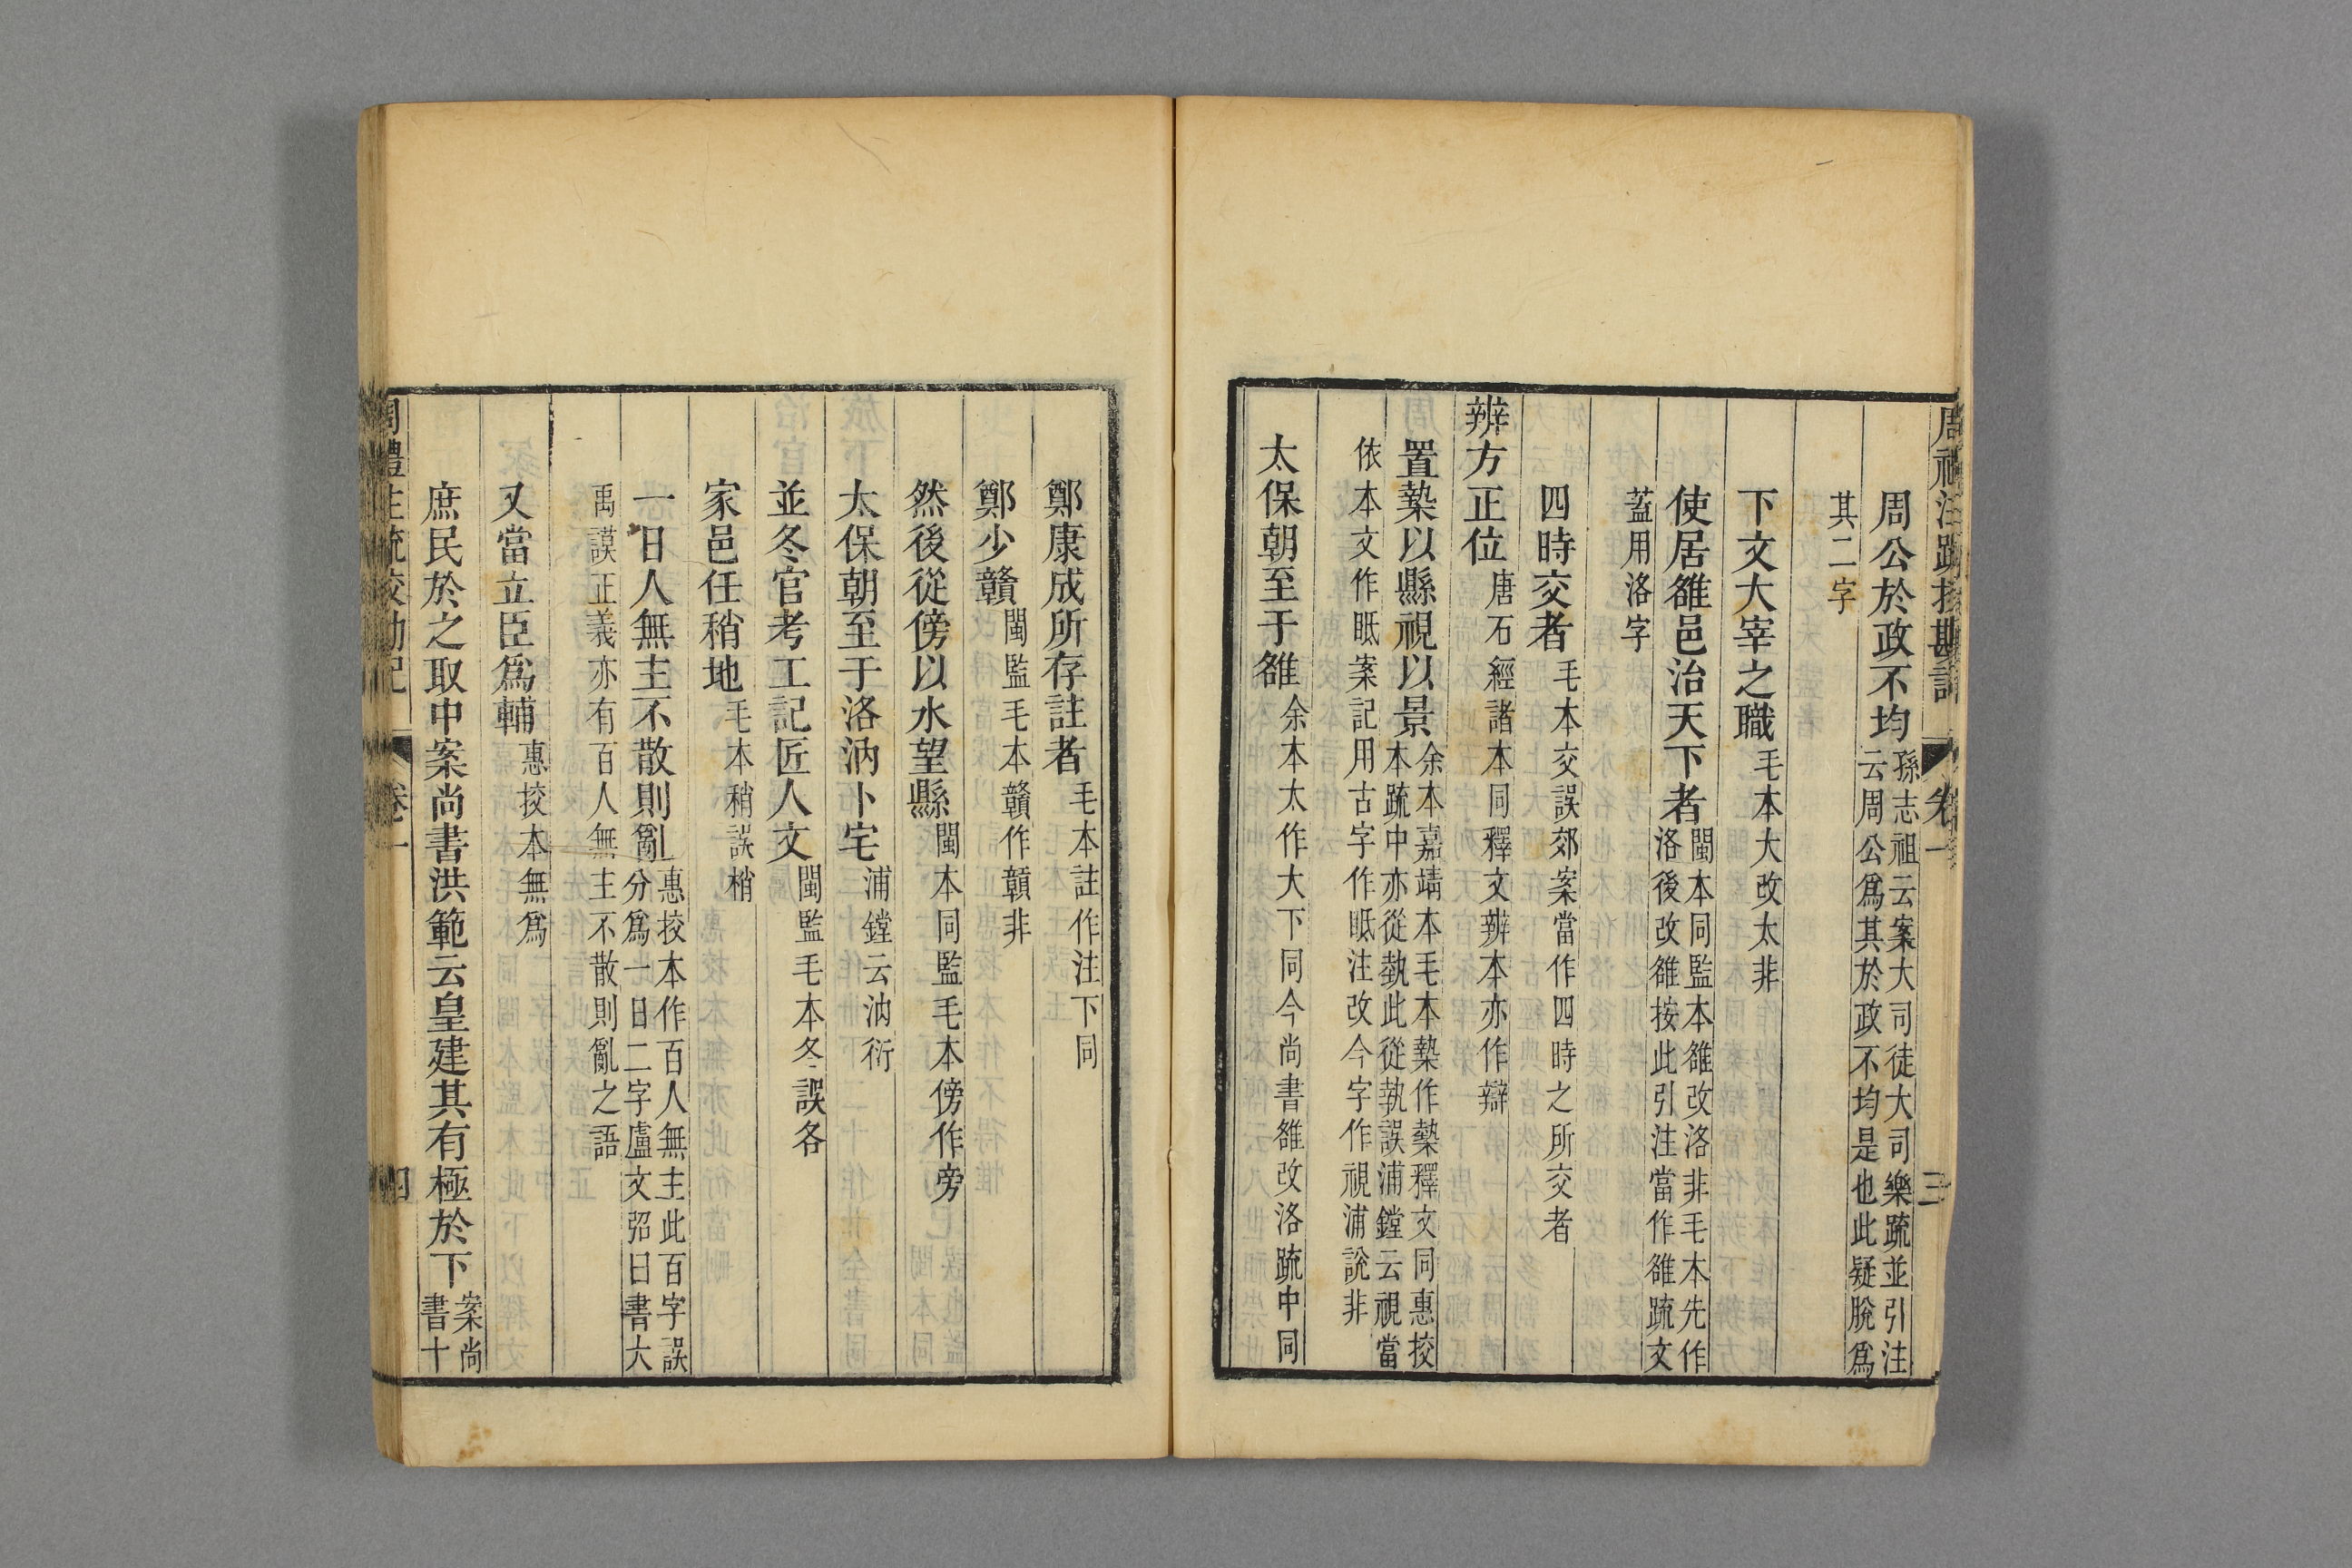 周禮注疏挍勘記 卷一 三
周公於政不均孫志祖云案大司徒大司樂疏並引注云周公爲其於政不均是也此疑脫爲
其二字
下文大宰之職毛本大改太非
使居雒邑治天下者閩本同監本雒改洛非毛本先作洛後改雒按此引注當作雒疏文
蓋用洛字
四時交者毛本交誤郊案當作四時之所交者
辨方正位唐石經諸本同釋文辨本亦作辯
置槷以縣視以景余本嘉靖本毛本槷作槷釋文同惠挍本疏中亦從埶此從執誤浦鏜云視當
依本文作眡案記用古字作眡注改今字作視浦說非
太保朝至于雒余本太作大下同今尚書雒改洛疏中同
鄭康成所存註者毛本註作注下同
鄭少贛閩監毛本贛作贑非
然後從傍以水望縣閩本同監毛本傍作旁
太保朝至于洛汭卜宅浦鏜云汭衍
並冬官考工記匠人文閩監毛本冬誤各
家邑任稍地毛本稍誤梢
一日人無主不散則亂惠挍本作百人無主此百字誤分爲一日二字盧文弨曰書大
禹謨正義亦有百人無主不散則亂之語
又當立臣爲輔惠挍本無爲
庶民於之取中案尚書洪範云皇建其有極於下案尚書十
周禮注疏校勘記 卷一 四